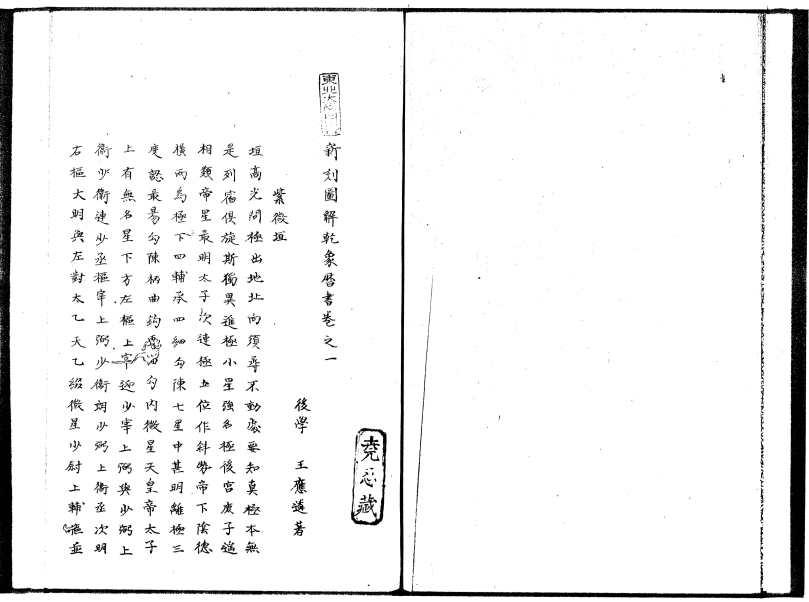 新刻圖解乾象曆書卷之一
後學　王應遴著
紫微垣
垣高先問極出地北向須尋不動處要知真極本無
是列宿俱旋斯獨異進極小星強名極後宮庶子遙
相類帝星最明太子次連極五位作斜勢帝下陰德
橫兩烏極下四輔承四細勾陳七星中甚明離極三
度認最易勾陳柄曲鈎勾內微星天皇帝太子
上有無名星下方左樞上宰迎少宰上弼與少弼上
衞少衞連少丞樞宰上弼少衞朗少弼上衞丞次明
右樞大明與左對太乙天乙綴微星少尉上輔樞並
東北大
堯忍藏